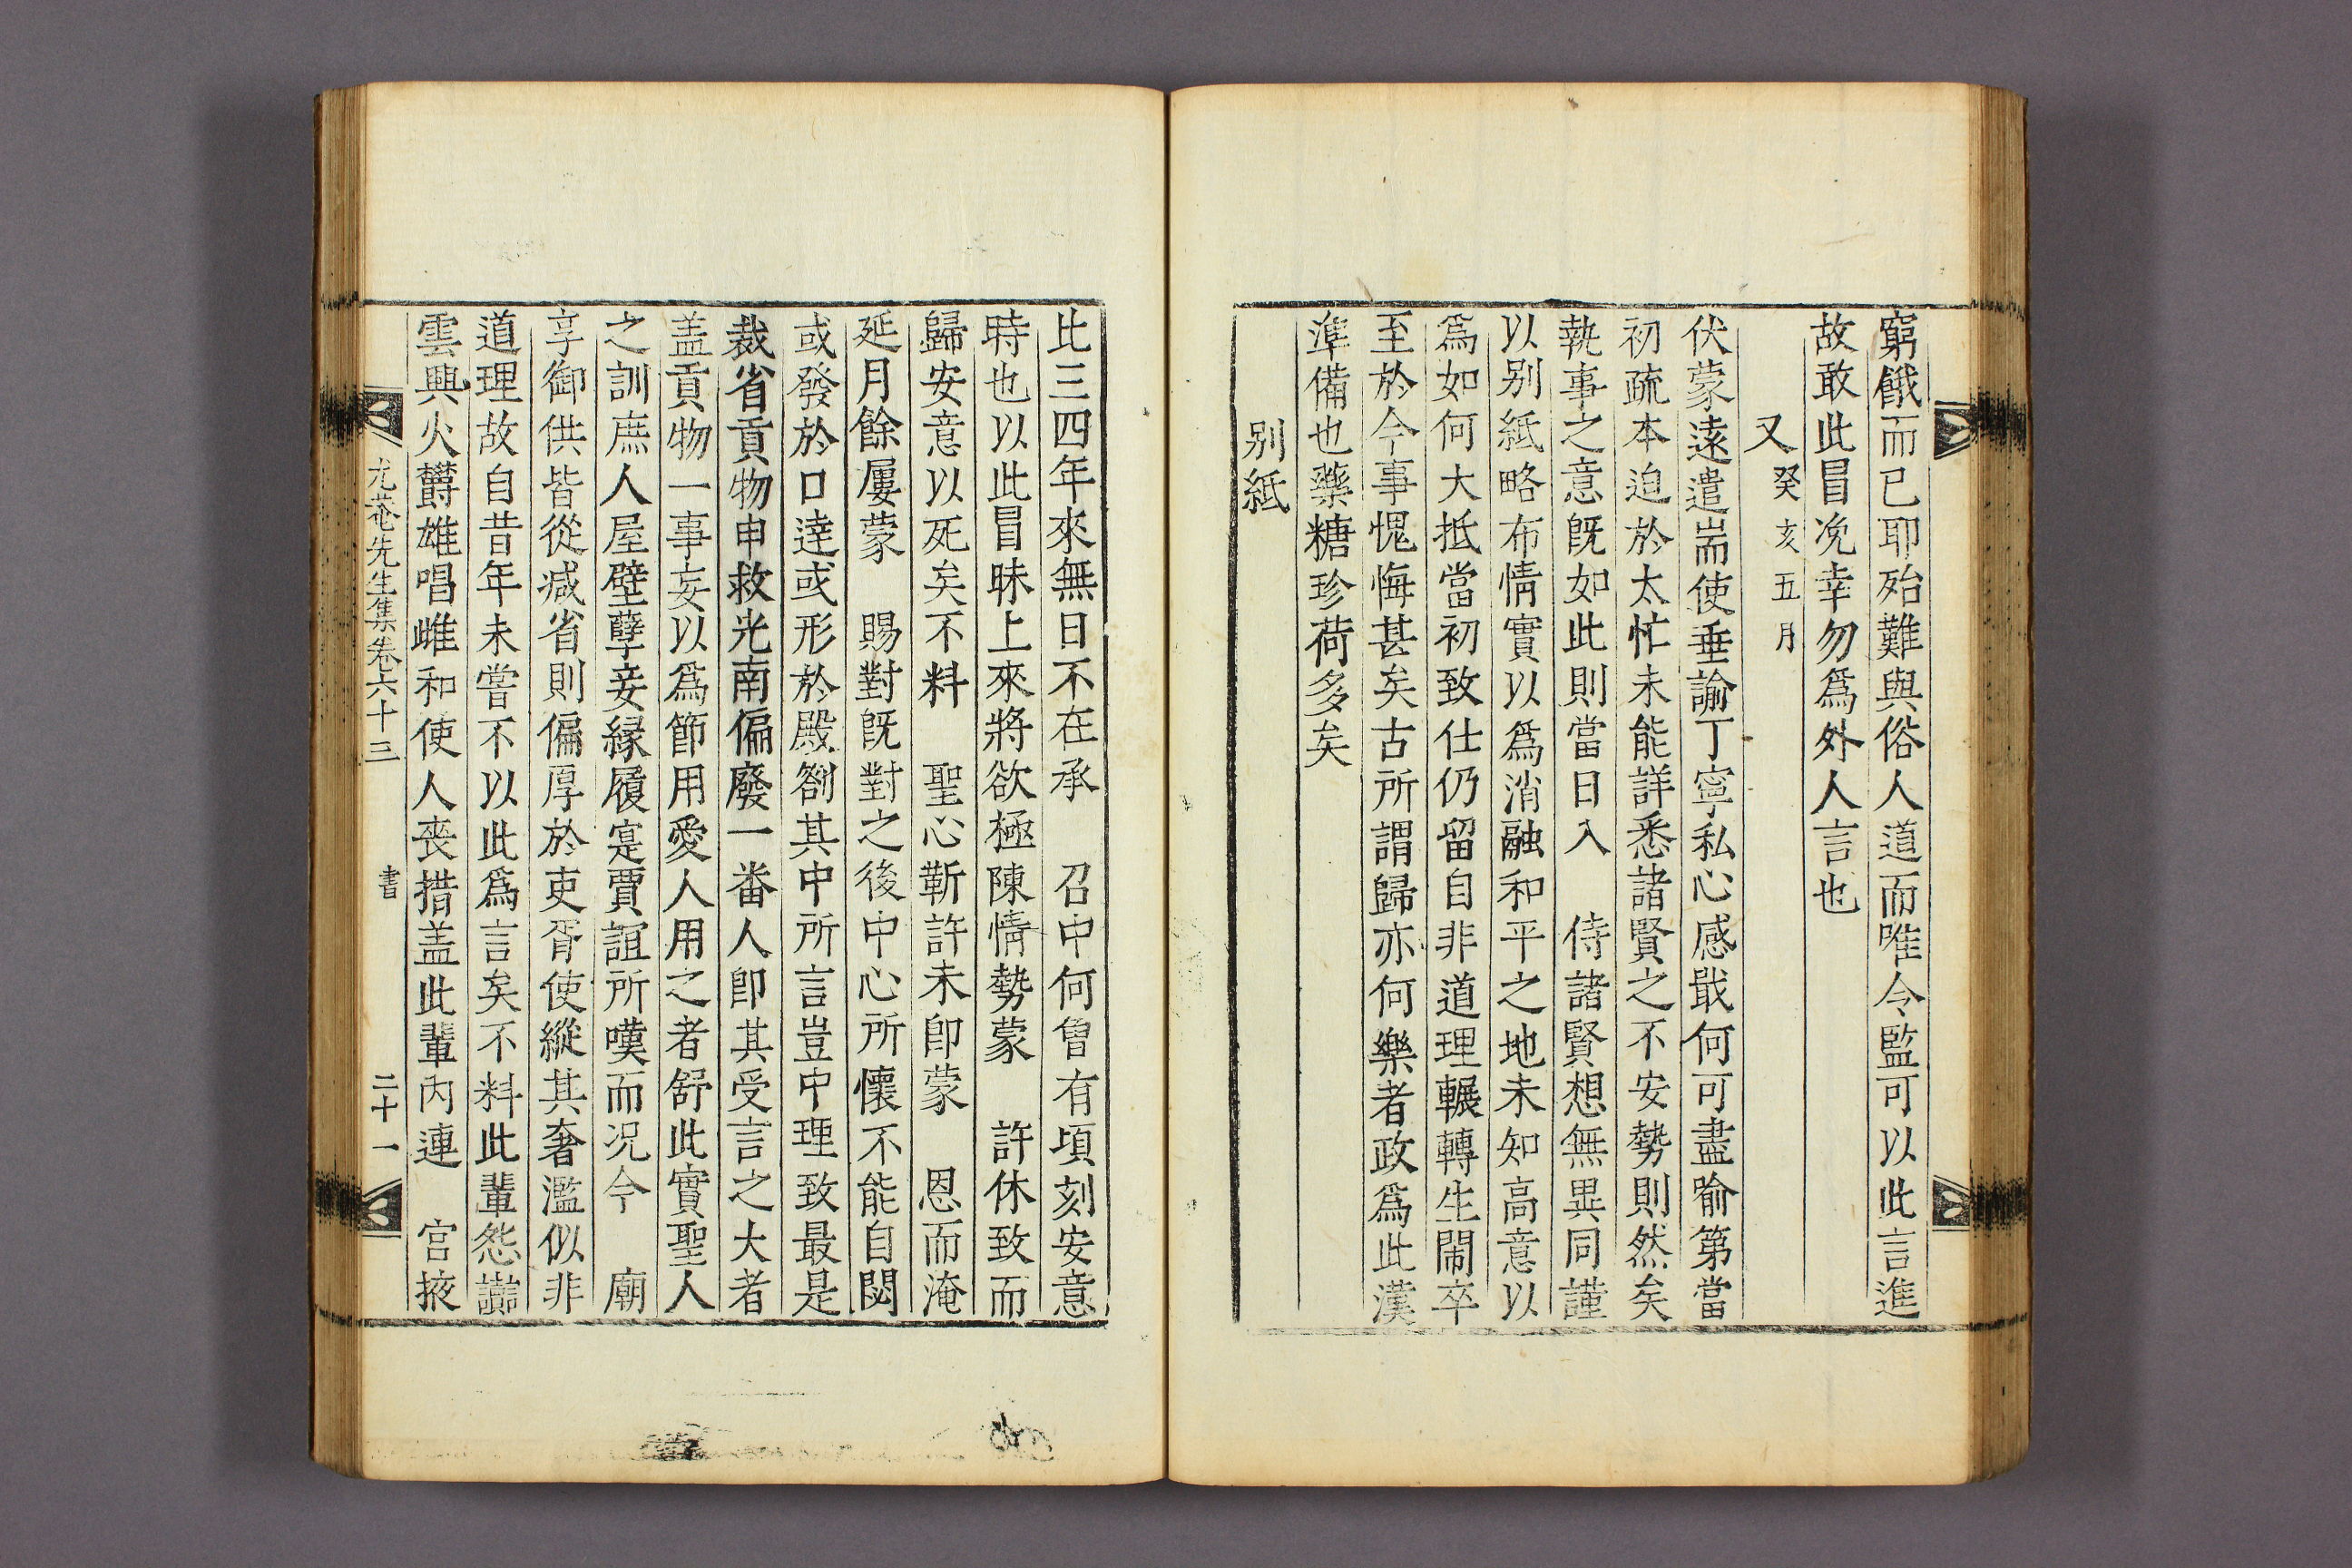 窮餓而已耶殆難與俗人道而唯令監可以此言進
故敢此冒浼幸勿爲外人言也
又癸亥五月
伏蒙遠遣耑使垂諭丁寧私心感戢何可盡喻第當
初疏本迫於太忙未能詳悉諸賢之不安勢則然矣
執事之意旣如此則當日入 侍諸賢想無異同謹
以别紙略布情實以爲消融和平之地未知高意以
爲如何大抵當初致仕仍留自非道理輾轉生閙卒
至於今事愧悔甚矣古所謂歸亦何樂者政爲此漢
準備也藥糖珍荷多矣
别紙
比三四年來無日不在承 召中何曾有頃刻安意
時也以此冒昧上來將欲極陳情勢蒙 許休致而
歸安意以死矣不料 聖心靳許未卽蒙 恩而淹
延月餘屢蒙 賜對旣對之後中心所懷不能自閟
或發於口達或形於殿劄其中所言豈中理致最是
裁省貢物申救光南偏廢一番人卽其受言之大者
盖貢物一事妄以爲節用愛人用之者舒此實聖人
之訓庶人屋壁孽妾緣履寔賈誼所嘆而况今 廟
享御供皆從减省則偏厚於吏胥使縱其奢濫似非
道理故自昔年未嘗不以此爲言矣不料此輩怨讟
雲興火欝雄唱雌和使人喪措盖此輩內連 宮掖
尤菴先生集卷六十三 書 二十一